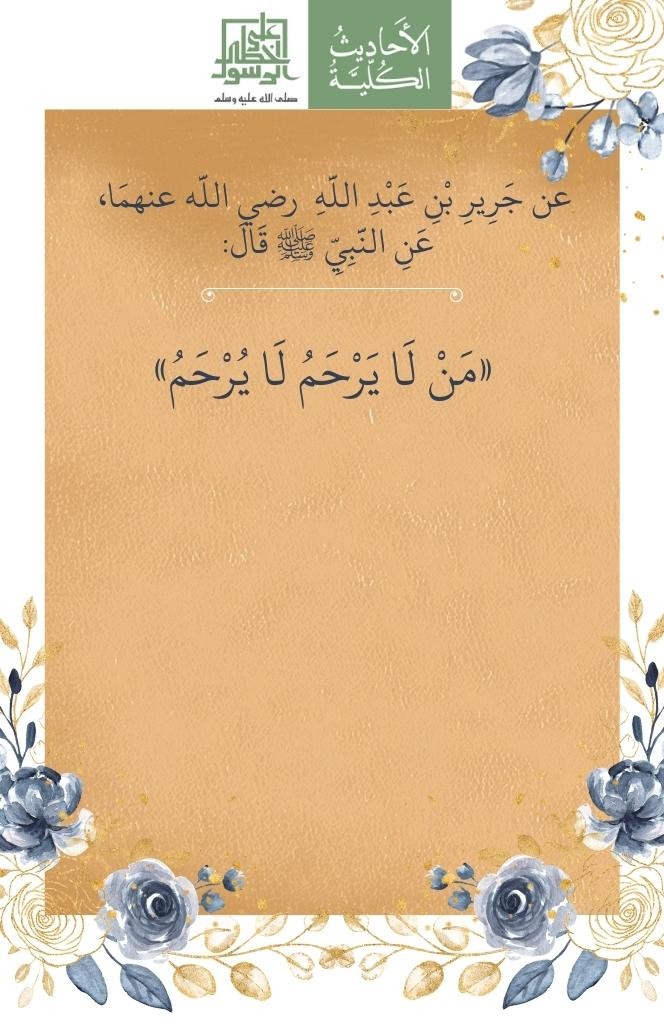 الأَحَادِيثُ
الكُلِّيَّةُ
على
خطى
الرسول
صلى الله عليه وسلم
عن جَرِيرِ بْنِ عَبْدِ اللّهِ رضي اللّه عنهمَا،
عَنِ النّبِيِّ ﷺ قَالَ:
«مَنْ لَا يَرْحَمُ لَا يُرْحَمُ»